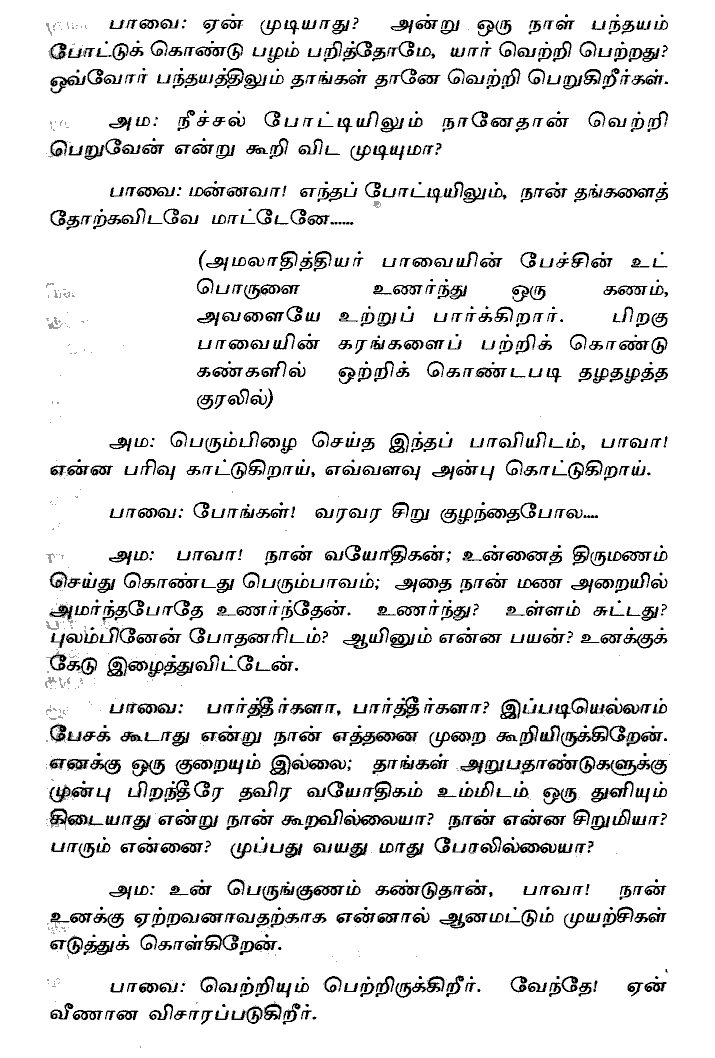 பாவை: ஏன் முடியாது? அன்று ஒரு நாள் பந்தயம்
போட்டுக் கொண்டு பழம் பறித்தோமே, யார் வெற்றி பெற்றது?
ஒவ்வோர் பந்தயத்திலும் தாங்கள் தானே வெற்றி பெறுகிறீர்கள்.
அம: நீச்சல் போட்டியிலும் நானேதான் வெற்றி
பெறுவேன் என்று கூறி விட முடியுமா?
பாவை: மன்னவா! எந்தப் போட்டியிலும், நான் தங்களைத்
தோற்கவிடவே மாட்டேனே......
(அமலாதித்தியர் பாவையின் பேச்சின் உட்
பொருளை உணர்ந்து ஒரு கணம்,
அவளையே உற்றுப் பார்க்கிறார். பிறகு
பாவையின் கரங்களைப் பற்றிக் கொண்டு
கண்களில் ஒற்றிக் கொண்டபடி தழதழத்த
குரலில்)
அம: பெரும்பிழை செய்த இந்தப் பாவியிடம், பாவா!
என்ன பரிவு காட்டுகிறாய், எவ்வளவு அன்பு கொட்டுகிறாய்.
பாவை: போங்கள்! வரவர சிறு குழந்தைபோல....
அம: பாவா! நான் வயோதிகன்; உன்னைத் திருமணம்
செய்து கொண்டது பெரும்பாவம்; அதை நான் மண அறையில்
அமர்ந்தபோதே உணர்ந்தேன். உணர்ந்து? உள்ளம் சுட்டது?
புலம்பினேன் போதனரிடம்? ஆயினும் என்ன பயன்? உனக்குக்
கேடு இழைத்துவிட்டேன்.
பாவை: பார்த்தீர்களா, பார்த்தீர்களா? இப்படியெல்லாம்
பேசக் கூடாது என்று நான் எத்தனை முறை கூறியிருக்கிறேன்.
எனக்கு ஒரு குறையும் இல்லை; தாங்கள் அறுபதாண்டுகளுக்கு
முன்பு பிறந்தீரே தவிர வயோதிகம் உம்மிடம் ஒரு துளியும்
கிடையாது என்று நான் கூறவில்லையா? நான் என்ன சிறுமியா?
பாரும் என்னை? முப்பது வயது மாது போலில்லையா?
அம: உன் பெருங்குணம் கண்டுதான், பாவா! நான்
உனக்கு ஏற்றவனாவதற்காக என்னால் ஆனமட்டும் முயற்சிகள்
எடுத்துக் கொள்கிறேன்.
பாவை: வெற்றியும் பெற்றிருக்கிறீர். வேந்தே! ஏன்
வீணான விசாரப்படுகிறீர்.